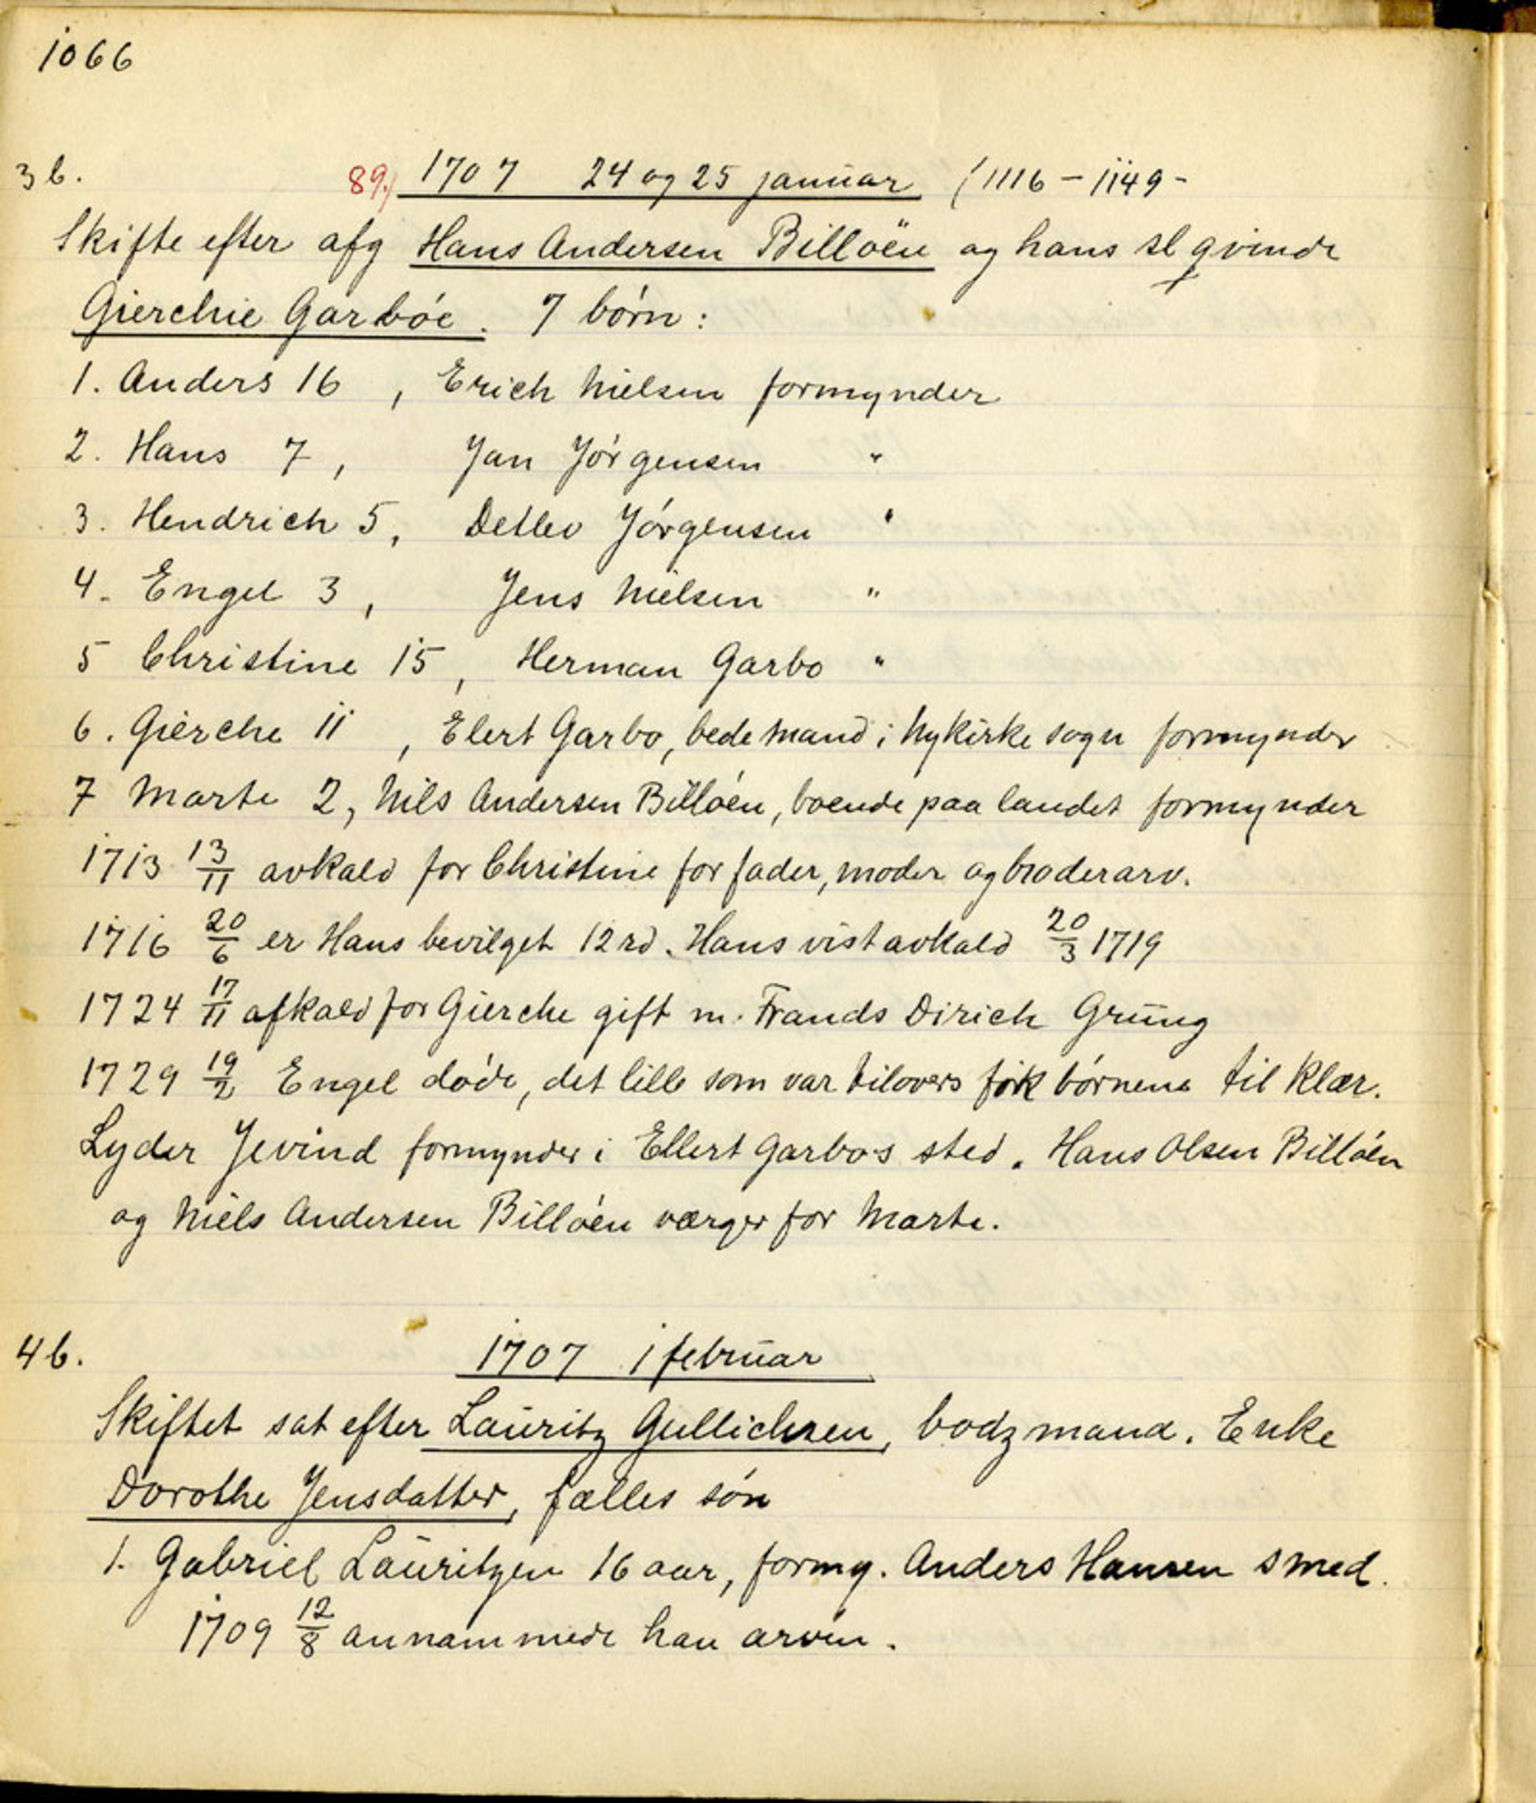 1066
3 b. 89.) 1707 24 og 25 januar (1116 - 1149 -
Skifte efter afg Hans Andersen Billøen og hans sl qvinde
Gierchie Garbøe. 7 børn:
1. Anders 16, Erich Nielsen formynder
2. Hans 7, Jan Jørgensen "
3. Hendrich 5, Detlev Jørgensen "
4. Engel 3, Jens Nielsen "
5 Christine 15, Herman Garbo "
6. Gierche 11, Elert Garbo, bedemand i Nykirke sogn formynder
7 Marte 2, Nils Andersen Billøen, boende paa landet formynder
1713 13/11 avkald for Christine for fader, moder og broderarv.
1716 20/6 er Hans bevilget 12 rd. Hans vist avkald 20/3 1719
1724 17/11 afkald for Gierche gift m. Frands Dirich Grung
1729 19/2 Engel døde, det lille som var tilovers fik børnene til klær.
Lyder Jevind formynder i Ellert Garbos sted. Hans Olsen Billøen
og Niels Andersen Billøen værger for Marte.
4 b. 1707 1 februar
Skiftet sat efter Lauritz Gullichsen, bodzmand. Enke
Dorothe Jensdatter, fælles søn
1. Gabriel Lauritzen 16 aar, formy. Anders Hansen smed.
1709 12/8 annammede han arven.